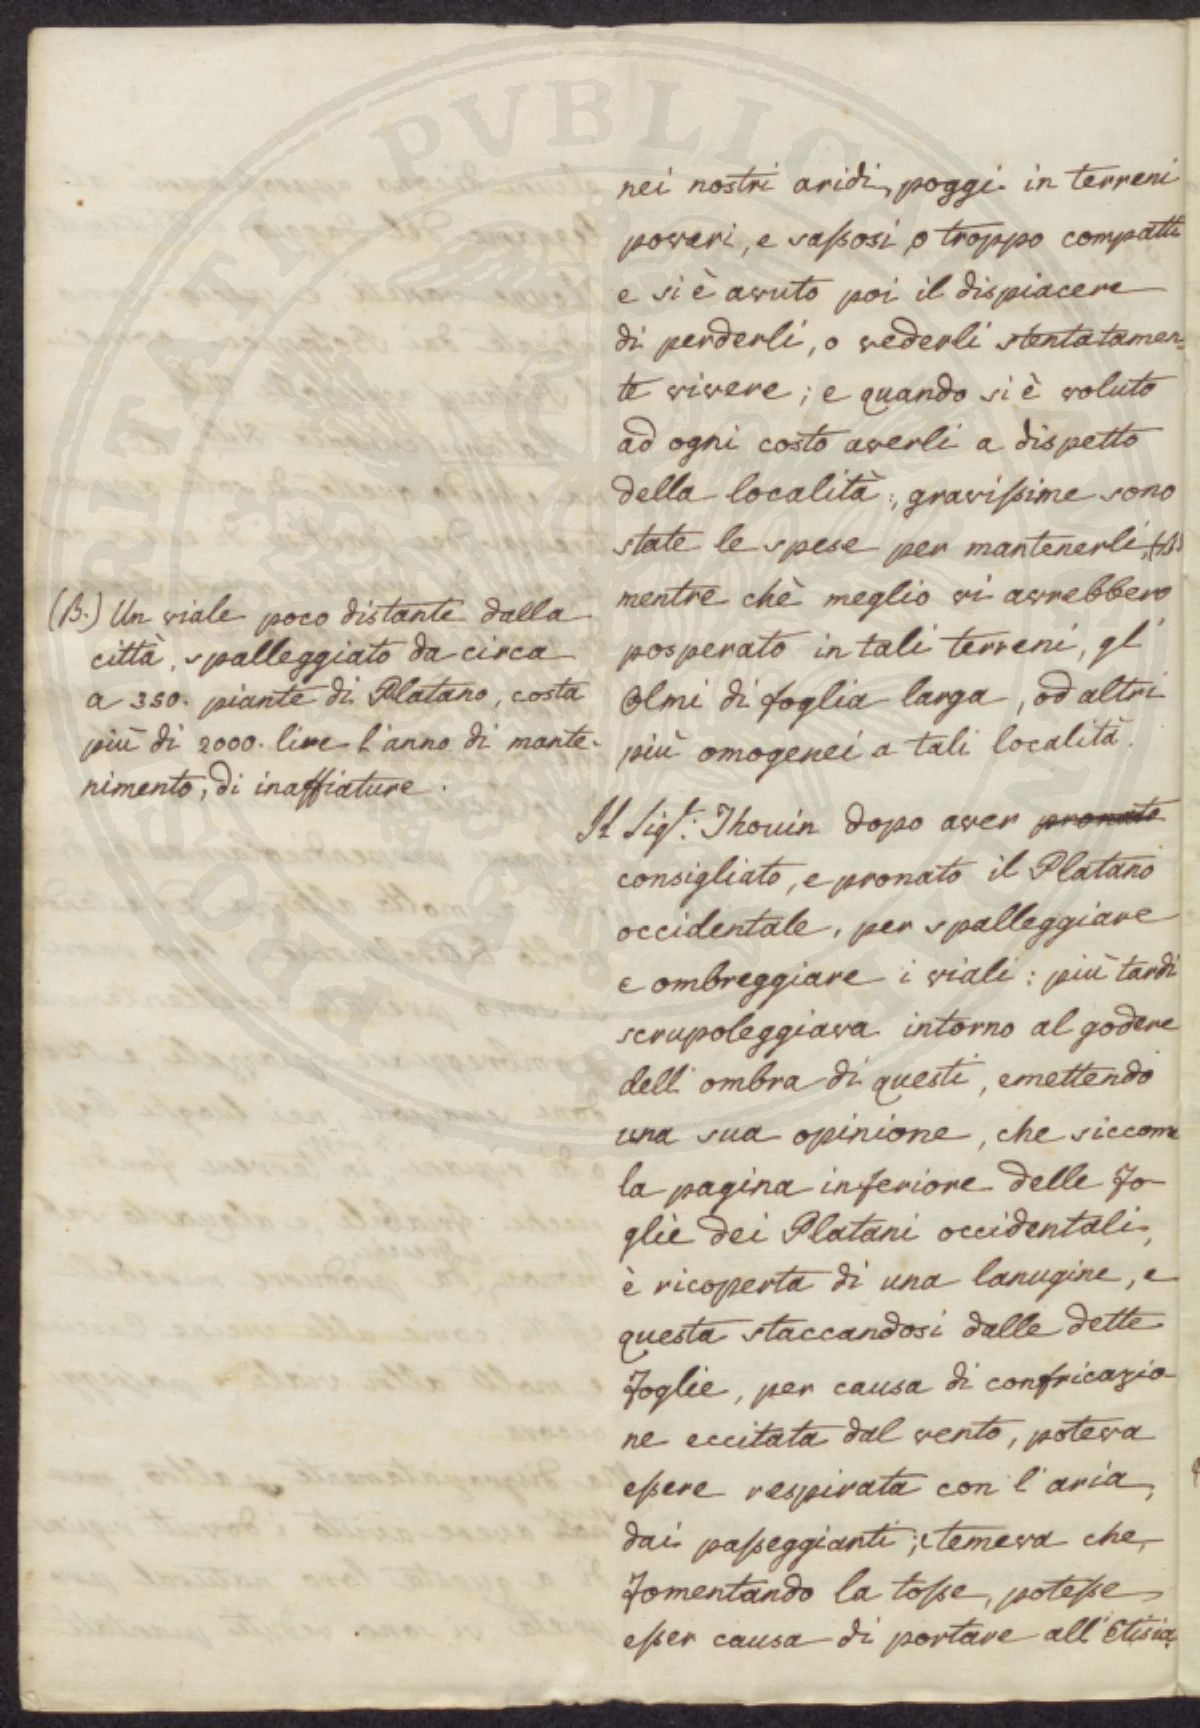 nei nostri aridi poggi in terreni
poveri, e sassosi, o troppo compatti
e si è avuto poi il dispiacere
di perderli, o vederli stentatamen-
te vivere; e quando si è voluto
ad ogni costo averli a dispetto
della località; gravissime sono
state le spese per mantenerli, (B)
mentre chè meglio vi avrebbero
posperato in tali terreni, gl'
Olmi di foglia larga, od altri
più omogenei a tali località.
Il Sigr. Thouin dopo aver pronato
consigliato, e pronato il Platano
occidentale, per spalleggiare
e ombreggiare i viali: più tardi
scrupoleggiava intorno al godere
dell'ombra di questi, emettendo
una sua opinione, che siccome
la pagina inferiore delle fo-
glie dei Platani occidentali,
è ricoperta di una lanugine, e
questa staccandosi dalle dette
foglie, per causa di confricazio-
ne eccitata dal vento, poteva
essere respirata con l'aria,
dai passeggianti; e temeva che,
fomentando la tosse, potesse
esser causa di portare all'Etisia,
(B.) Un viale poco distante dalla
città, spalleggiato da circa
a 350. piante di Platano, costa
più di 2000. lire l'anno di mante-
nimento, di inaffiature.
PUBLICAE